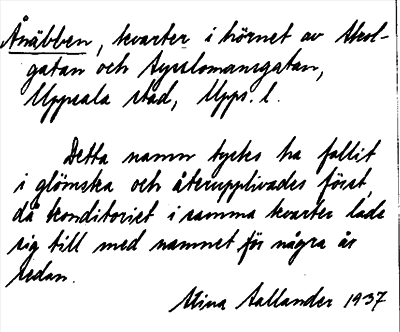 Ånäbben, kvarter i hörnet av Skol-
gatan och Sysslomansgatan,
Uppsala stad, Upps. l.
Detta namn tycks ha fallit
i glömska och återupplivades först,
då konditoriet i samma kvarter lade
sig till med namnet för några år
sedan.
Stina Aallander 1937